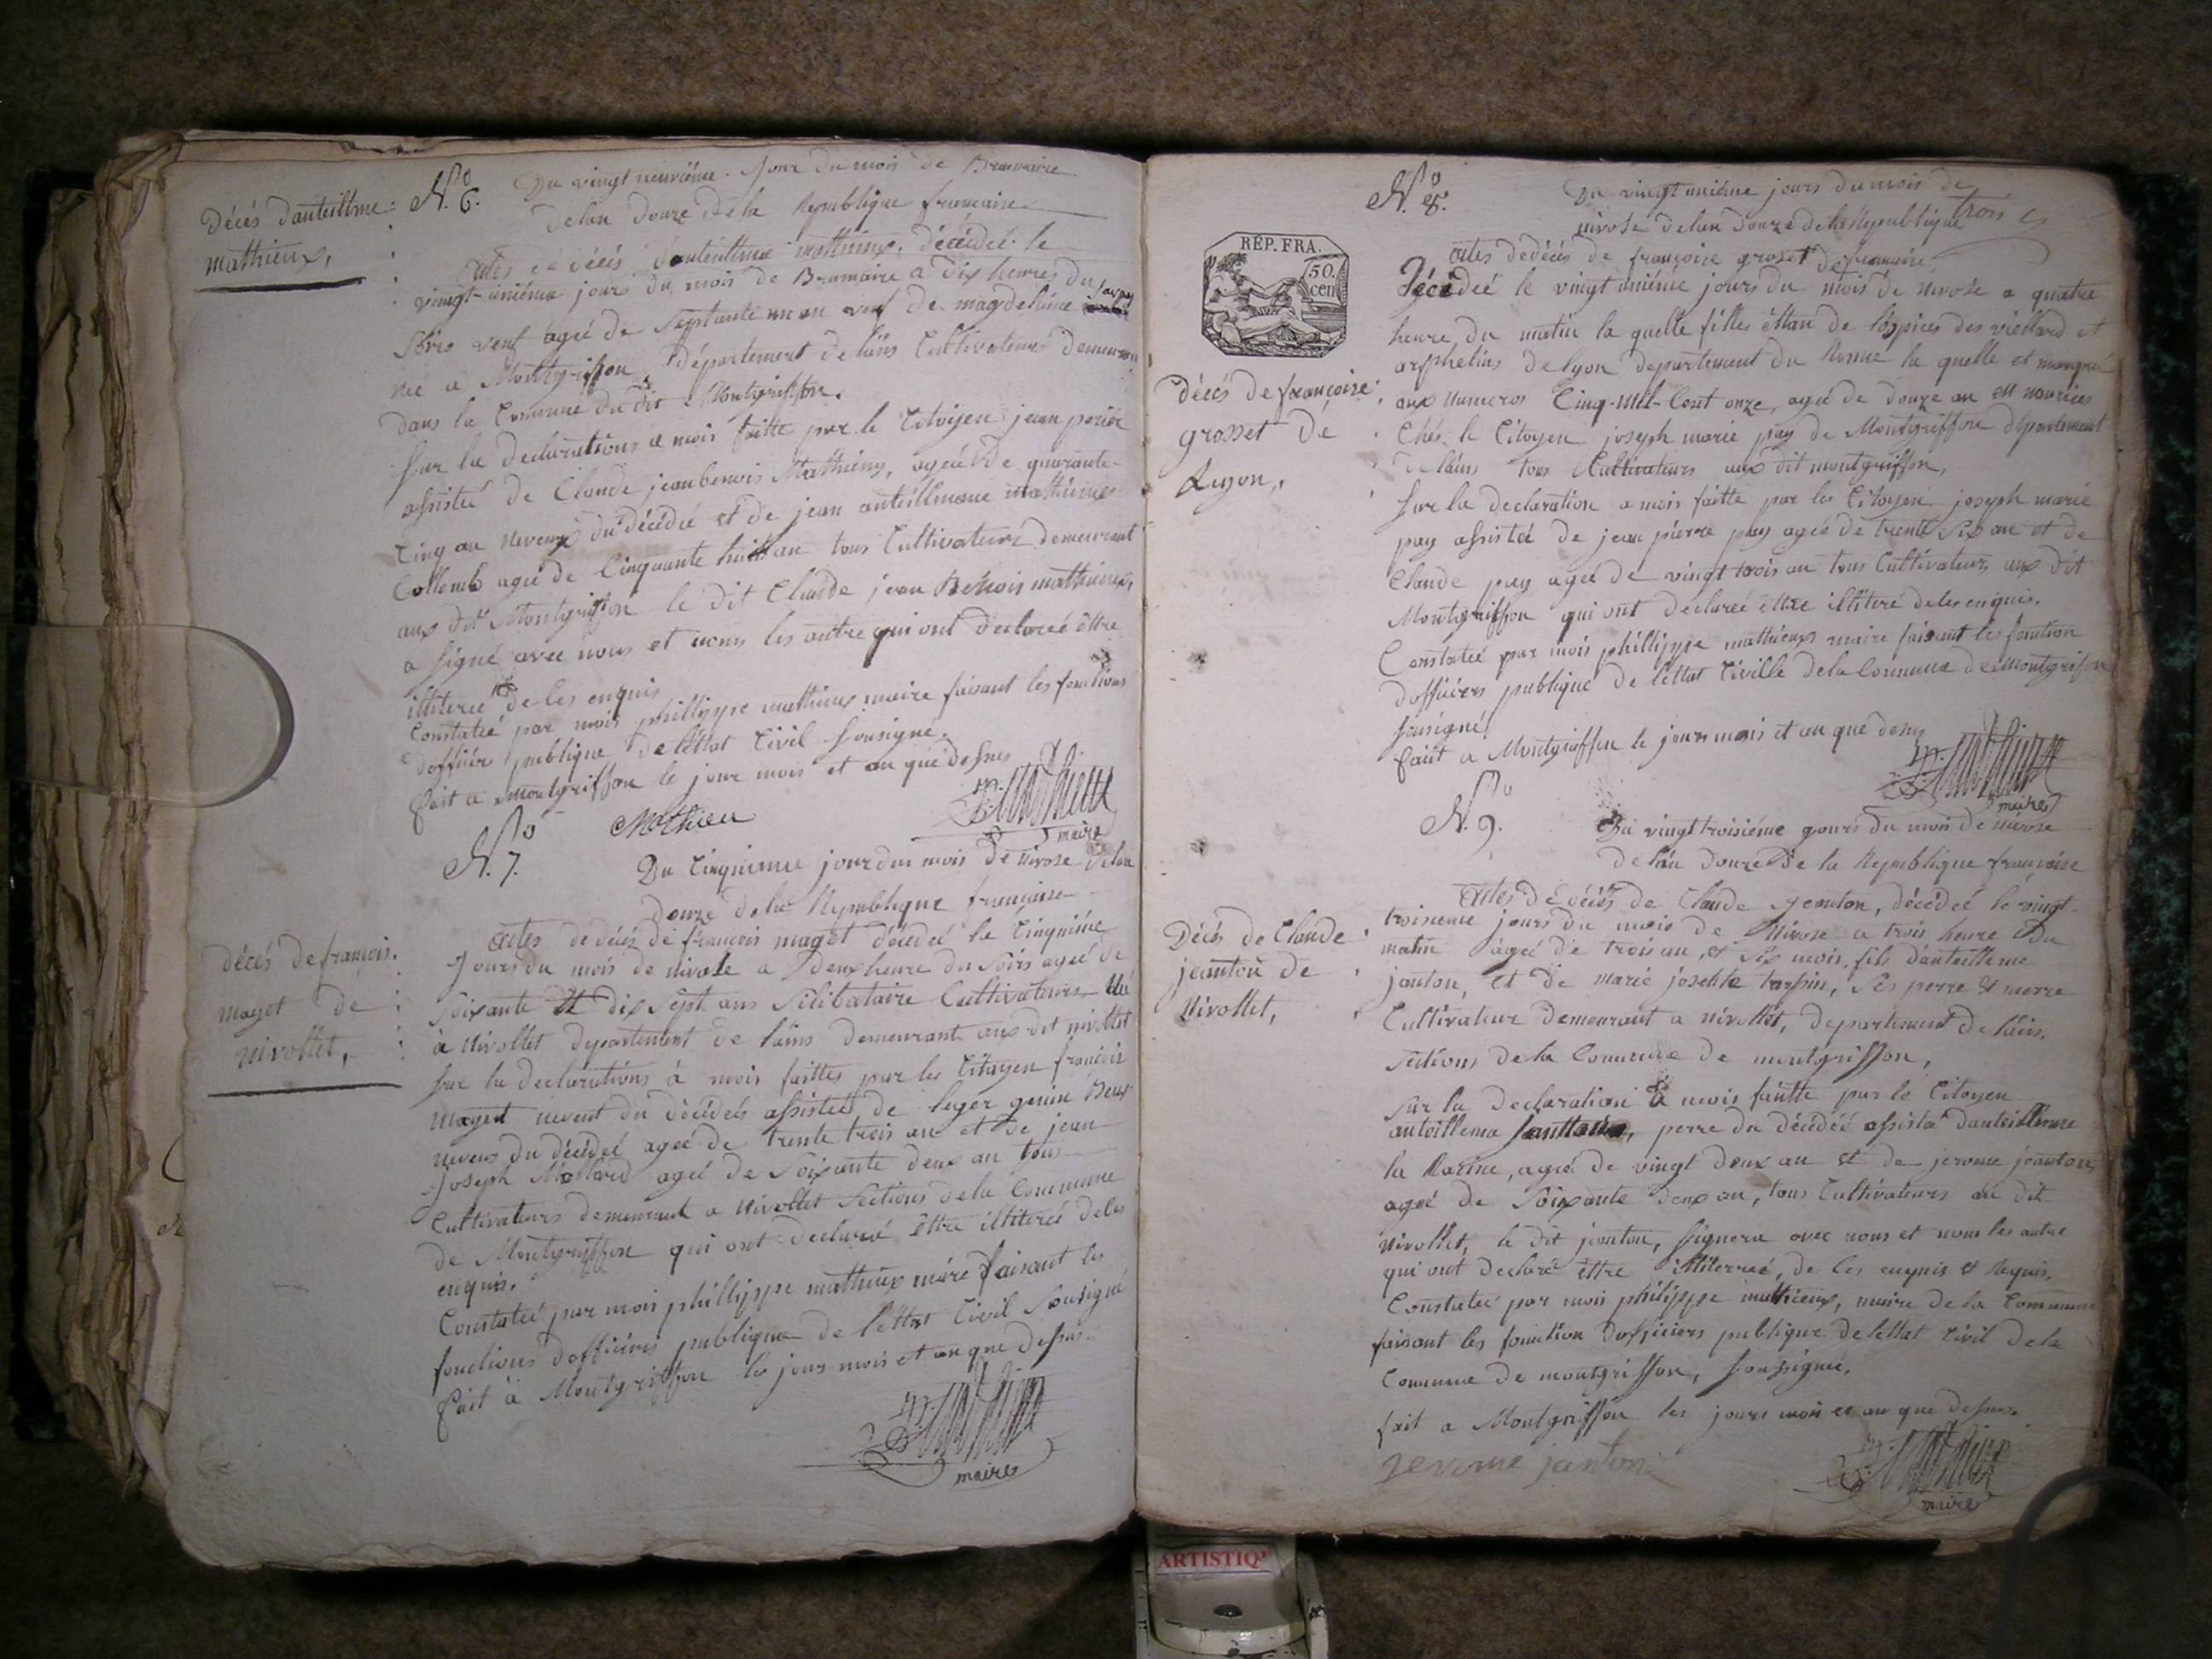 Décès dauteillme
mathieux,
N.º 6. Du vingt neuvième Jour du mois de Brumaire
delan douze de la Republique francaise
actes de décès dauteillme mathieux, décédée le
vingt-unième jours du mois de Brumaire a dix heures du
soire veuf agée de septante un an veuf de magdelaine
né a Montgriffon, département de lains Cultivateur
dans la Commune du dit Montgriffon.
Sur la declarations a mois faitte par le Citoyen jean perier
assisteé de Claude jean benois Mathieux, ageé de quarante
Cinq an neveux du décédeé et de jean anteillmme mathieux
Collomb ageé de Cinquante huit an tous Cultivateurs demeurant
aux dit Montgriffon le dit Claude jean Benois mathieux,
a signé avec nous et nom les autre qui ont declareé êttre
illitereé de les enquis
Constateé par mois phillippe mathieux maire faisant les fonctions
dofficier publique de lettat Civil sousigné.
fait a Montgriffon le jour mois et an que dessus
Mathieu
maire
N.º 7. Du Cinquieme jour du mois de nivose delan
douze dela Republique francaise
décés de francois.
maget de
nivollet,
actes de décès de françois maget décédeé le Cinquiéme
Jours du mois de nivose a deux heure du soirs ageé de
soixante et dix sept ans Silibataire Cultivateurs né
à nivollet departement de lains demeurant aux dit nivollet
sur la declarations à mois faittes par les Citoyen francois
maget neveut du décédeés assisteé de leger genin
neveux du décédeé ageé de trente trois an et de jean
Joseph Mollard ageé de Soixante deux an tous
Cultivateurs demeurant a nivollet Sections dela Commune
de Montgriffon qui ont declaré êttre illitereé deles
enquis.
Constateé par mois phillippe mathieux maire faisant les
fonctions dofficiers publique de lettat Civil sousigné
fait à Montgriffon le jour mois et an que dessus
maire
RÉP. FRA.
50.
cen
N.º 8. Du vingt uniéme jours du mois de
nivose de lan douze de la Republique
Décès de françoise
grosset de
Lyon,
actes de décès de françoise groset
Décédeé le vingt uniéme jours du mois de nivose a quatre
heure du matin la quelle filles éttan de lospices des viellard et
orphelins de lyon departement du Ronne la quelle et marqué
aux numeros Cinq-mil-Cent onze, ageé de douze an en nourices
Chés le Citoyen joseph marie pay de Montgriffon département
de lains tous Cultivateurs aux dit montgriffon,
Sur la declaration a mois faitte par les Citoyen joseph marie
pay assisteé de jean piérre pay ageé de trente six an et de
Claude pay ageé de vingt trois an tous Cultivateurs aux dit
Montgriffon qui ont declareé êttre illitéré de les enquis.
Constateé par mois phillippe mathieux maire faisant les fonction
dofficiers publique de lettat Civille dela Commune de montgriffon
sousigné
fait a Montgriffon le jours mois et an que dessus
maire
N.º 9. Du vingt troisiéme jours du mois de nivose
de lan douze de la Republique françoise
Décés de Claude
jeanton de
Nivollet,
actes de décès de Claude Jeanton, décédeé le vingt
troisieme jours du mois de Nivose a trois heure du
matin ageé de trois an, et six mois, fils dauteillme
janton, et de marie josephte tarpin, ses perre et merre
Cultivateur demeurant a nivollet, departement de lains.
sections de la Commune de montgriffon,
sur la declaration à mois faitte par le Citoyen
anteillema, perre du décédeé assistá danteillmme
la Racine, ageé de vingt deux an et de jerome jeanton,
ageé de soixante deux an, tous Cultivateurs au dit
nivollet, le dit jeanton, signera avec nous et nom les autre
qui ont declaré êttre illiterreé, de les enquis et Requis.
Constateé par mois philippe mathieux, maire de la Commune
faisant les fonction dofficiers publique de lettat Civil de la
Commune de montgriffon, soussignée.
fait a Montgriffon les jours mois et an que dessus.
jerome janton
maire
ARTISTIQ'